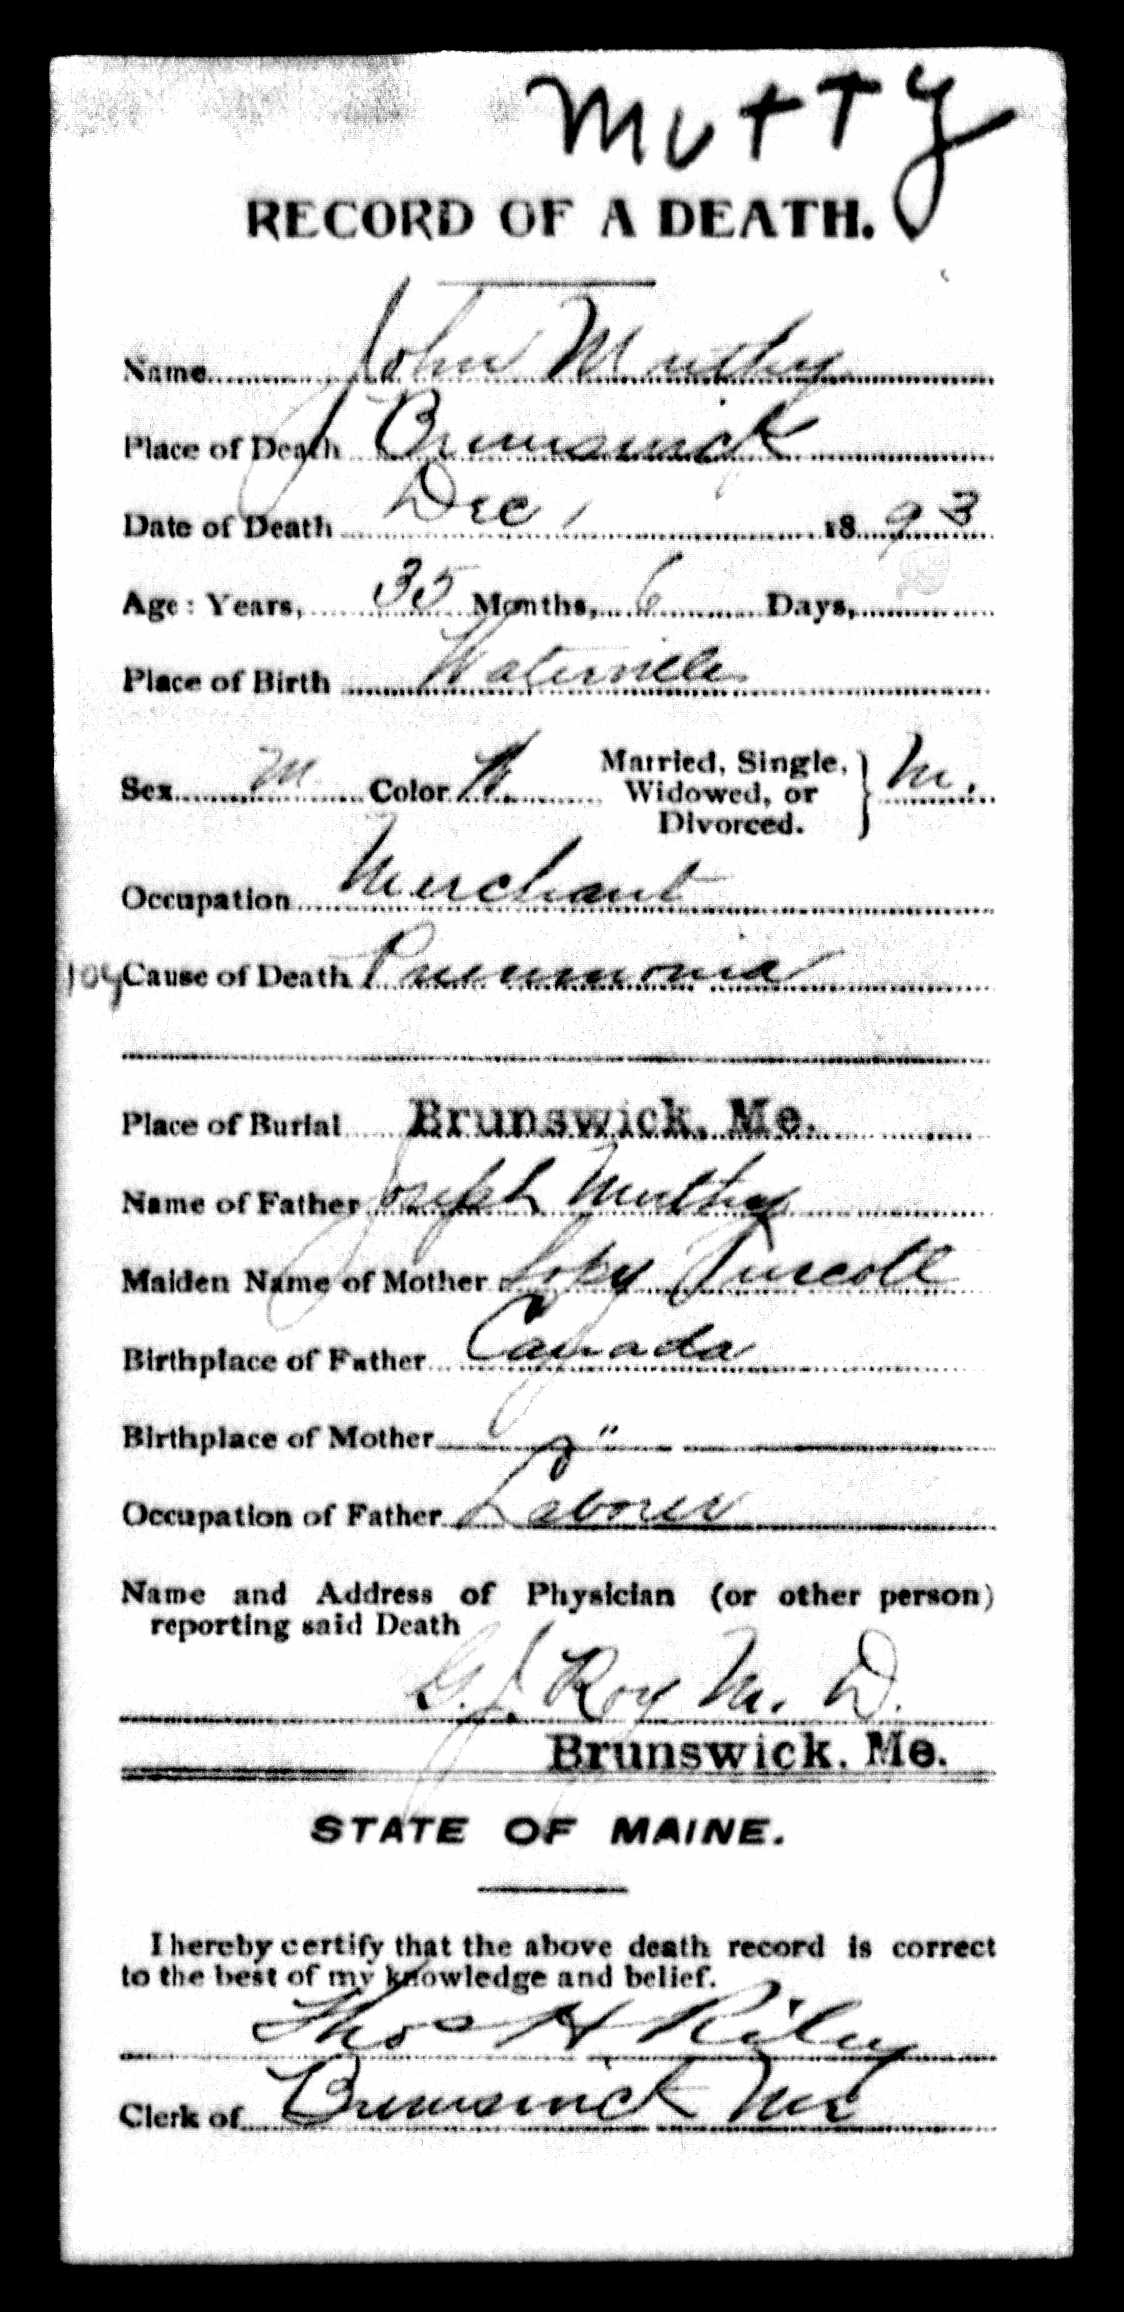 Mutty
RECORD OF A DEATH.
Name John Muthy
Place of Death Brunswick
Date of Death Dec 1 1893
Age: Years, 35 Months, 6 Days,
Place of Birth Waterville
Sex M Color W. Married, Single, Widowed, or Divorced. } M.
Occupation Merchant
109 Cause of Death Pneumonia
Place of Burial Brunswick, Me.
Name of Father Joseph Muthy
Maiden Name of Mother
Birthplace of Father Canada
Birthplace of Mother "
Occupation of Father Laborer
Name and Address of Physician (or other person)
reporting said Death
G. J. Roy M. D.
Brunswick, Me.
STATE OF MAINE.
I hereby certify that the above death record is correct
to the best of my knowledge and belief.
Thos H Riley
Clerk of Brunswick Me